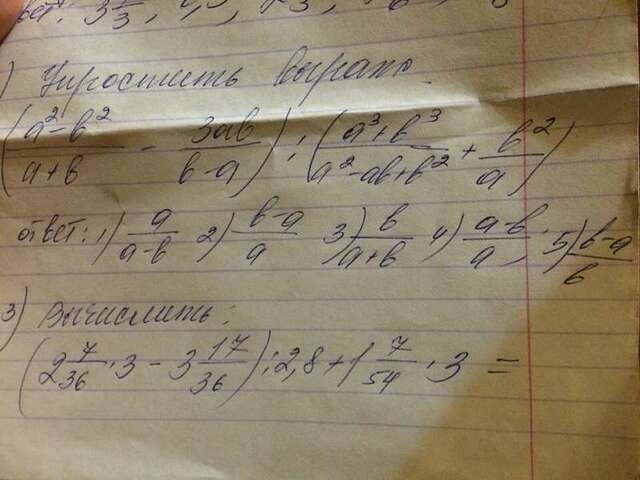 3 1/3
) Упростить выраж.
((a²-b²)/(a+b) - 3ab/(b-a)) : ((a³+b³)/(a²-ab+b²) + b²/a)
ответ: 1) a/(a-b) 2) (b-a)/a 3) b/(a+b) 4) (a-b)/a; 5) (b-a)/b
3) Вычислить:
(2 7/36 · 3 - 3 17/36) : 2,8 + 1 7/54 · 3 =